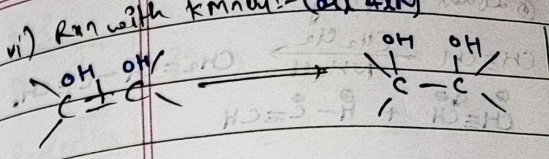 vi) Rxn with KMnO4:-
OH OH OH OH
C C C - C